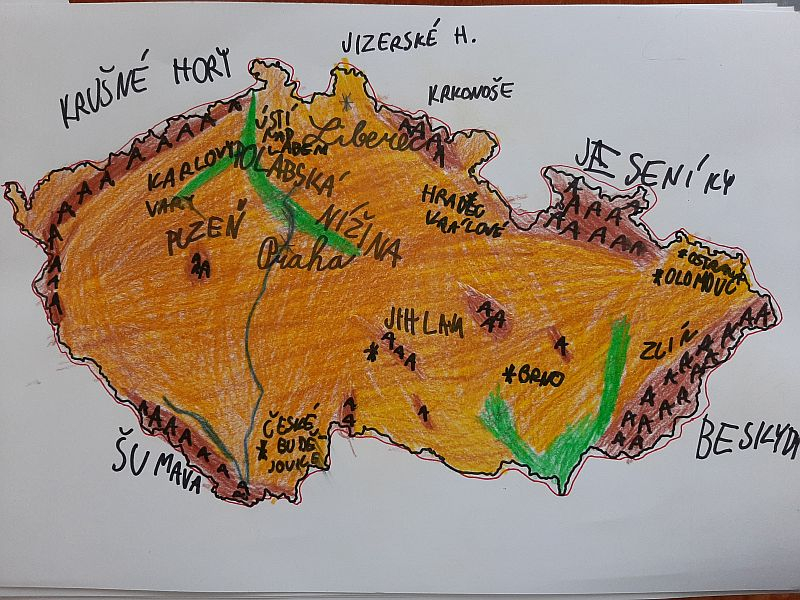 JIZERSKÉ H.
KRUŠNÉ HORY
KRKONOŠE
ÚSTÍ
NAD
LABEM
Liberec
KARLOVY
VARY
POLABSKÁ
NÍŽINA
JESENÍKY
HRADEC
KRÁLOVÉ
PLZEŇ
Praha
OSTRAVA
OLOMOUC
JIHLAVA
ZLÍN
BRNO
ČESKÉ
BUDĚ
JOVICE
ŠUMAVA
BESKYDY